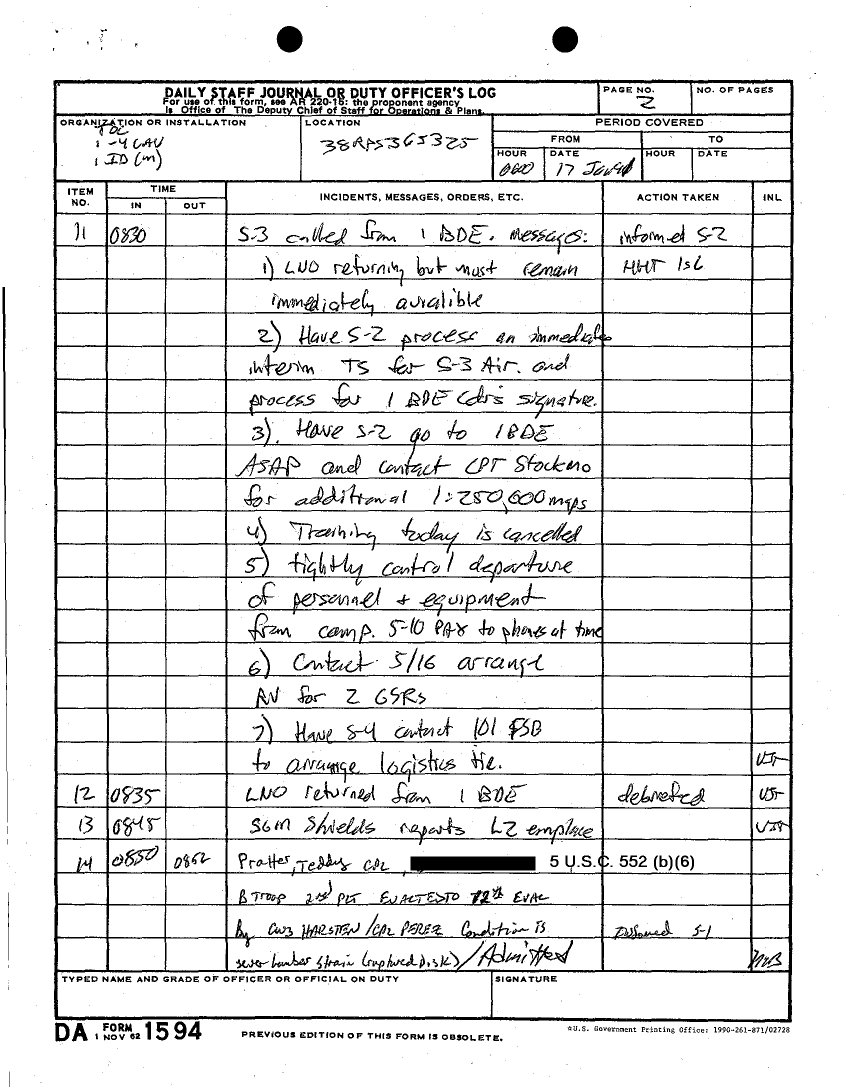 DAILY STAFF JOURNAL OR DUTY OFFICER'S LOG
For use of this form, see AR 220-15: the proponent agency
is Office of The Deputy Chief of Staff for Operations & Plans.
PAGE NO.
2
NO. OF PAGES
ORGANIZATION OR INSTALLATION
TOC
1-4 CAV
1 ID (m)
LOCATION
PERIOD COVERED
FROM
TO
HOUR
0600
DATE
17 Jan
HOUR
DATE
ITEM NO.
TIME
IN
OUT
INCIDENTS, MESSAGES, ORDERS, ETC.
ACTION TAKEN
INL
11 0830 S-3 called from 1 BDE. messages: informed S-2
1) LNO returning but must remain HHT
immediately avialible
2) Have S-2 process an immediate
interim TS for S-3 Air. and
process for 1 BDE Cdrs signature.
3). Have S-2 go to 1BDE
ASAP and contact CPT
for additional 1:250,000 maps
4) Training today is cancelled
5) tightly control departure
of personnel + equipment
from camp. 5-10 PAX to phones at time
6) Contact 5/16 arrange
for 2 GSRs
7) Have S-4 contact 101 FSB
to arrange logistics tie.
12 0835 LNO returned from 1 BDE debriefed
13 0845 SGM Shields reports LZ emplace
14 0850 0852 Pratter, Teddy CPL 5 U.S.C. 552 (b)(6)
B Troop 2nd PLT 12th EVAC
By CW3 HARSTEN / CPL PEREZ Condition Is Informed S-1
sever lumbar strain (ruptured Disk) / Admitted
TYPED NAME AND GRADE OF OFFICER OR OFFICIAL ON DUTY
SIGNATURE
DA FORM 1 NOV 62 1594
PREVIOUS EDITION OF THIS FORM IS OBSOLETE.
☆U.S. Government Printing Office: 1990-261-871/02728